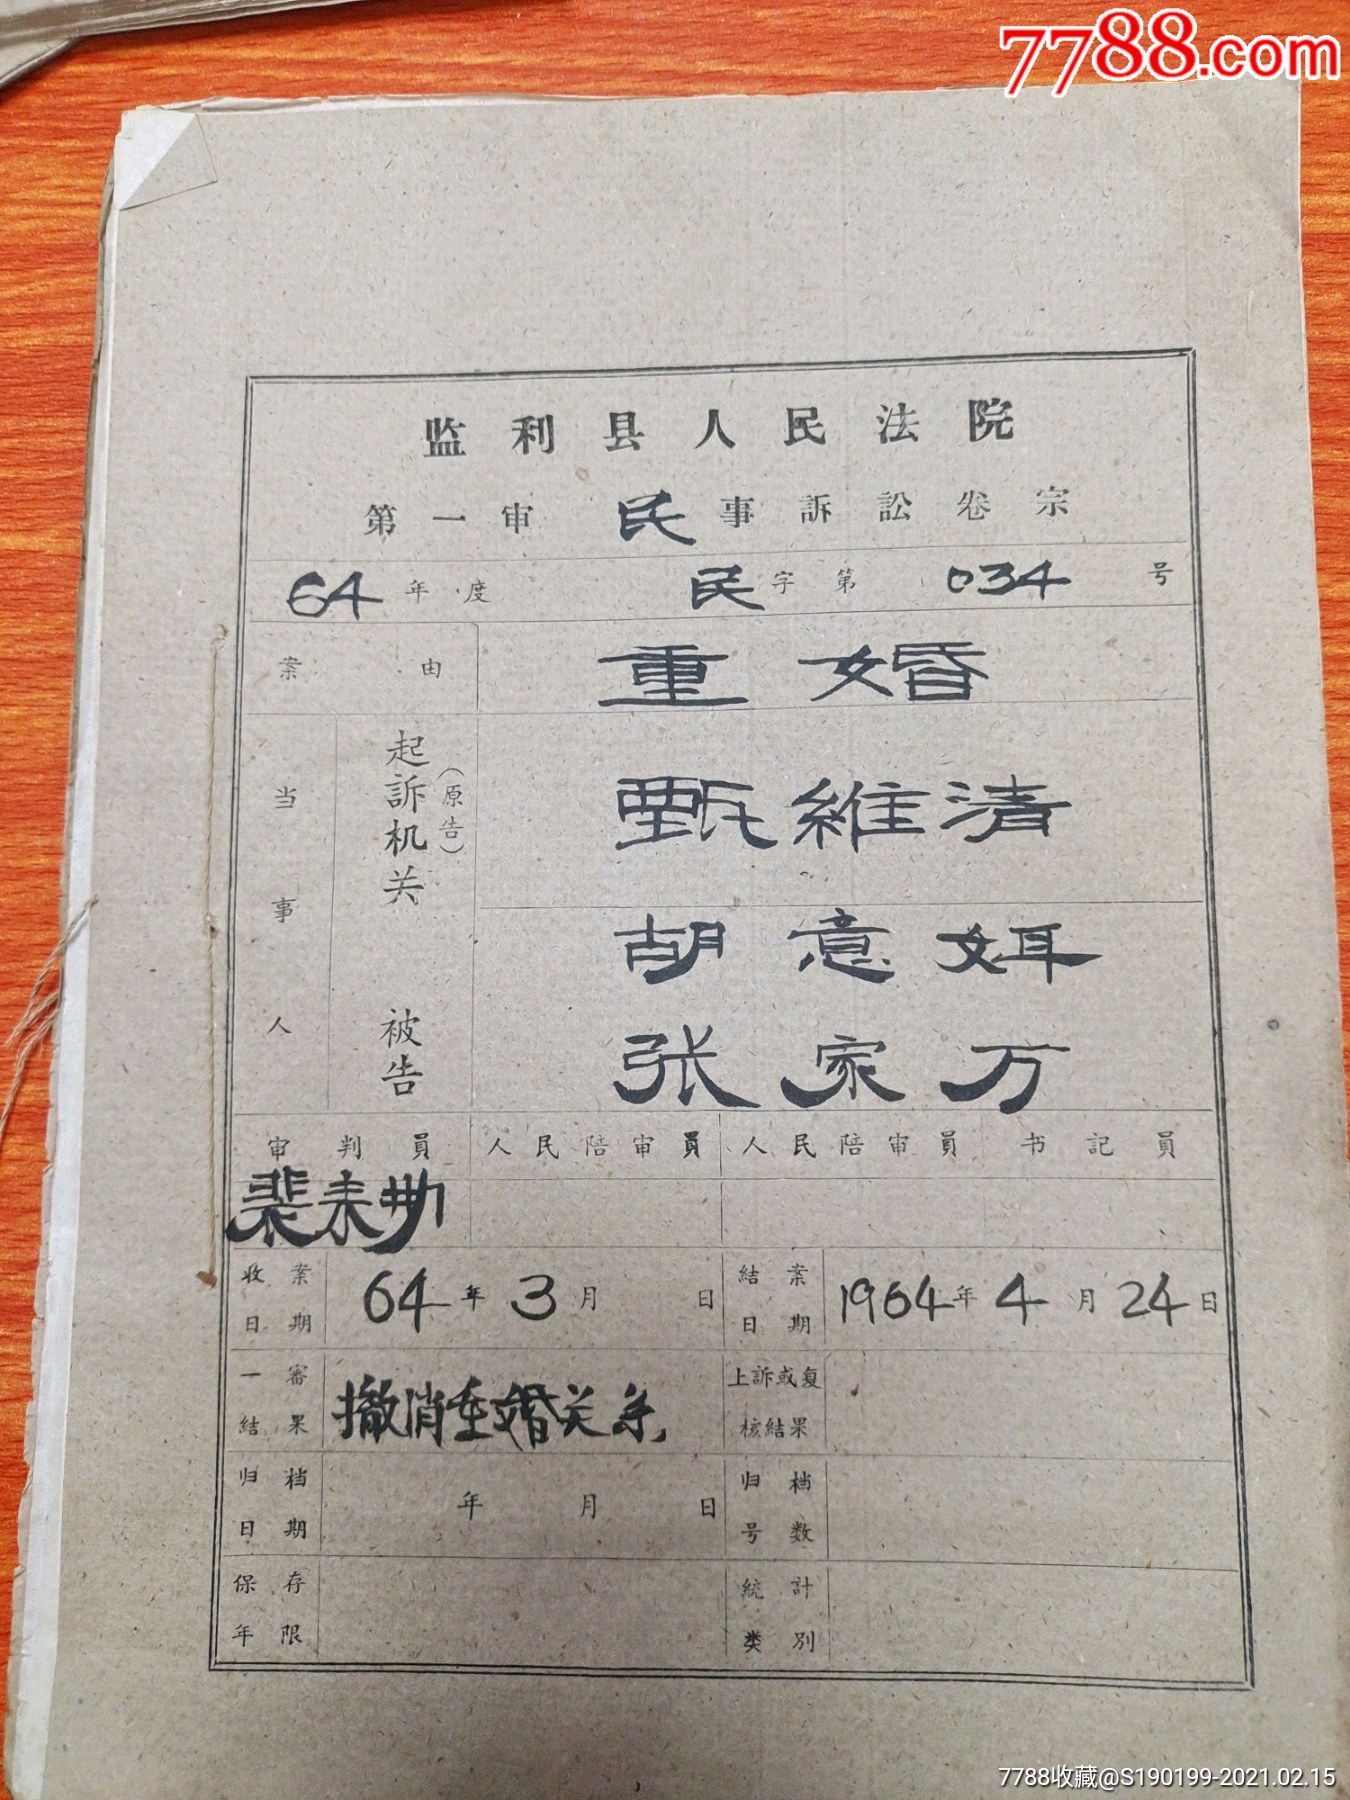 7788.com
监利县人民法院
第一审 民 事訴訟卷宗
64 年度 民 字第 034 号
案由 重婚
当事人
起訴机关（原告） 甄維清
被告 胡意姆
张家万
审判員 人民陪审員 人民陪审員 书記員
裴未
收案日期 64 年 3 月 日 結案日期 1964 年 4 月 24 日
一審結果 撤消重婚关系, 上訴或复核結果
归档日期 年 月 日 归档号数
保存年限 統計类別
7788收藏@S190199-2021.02.15